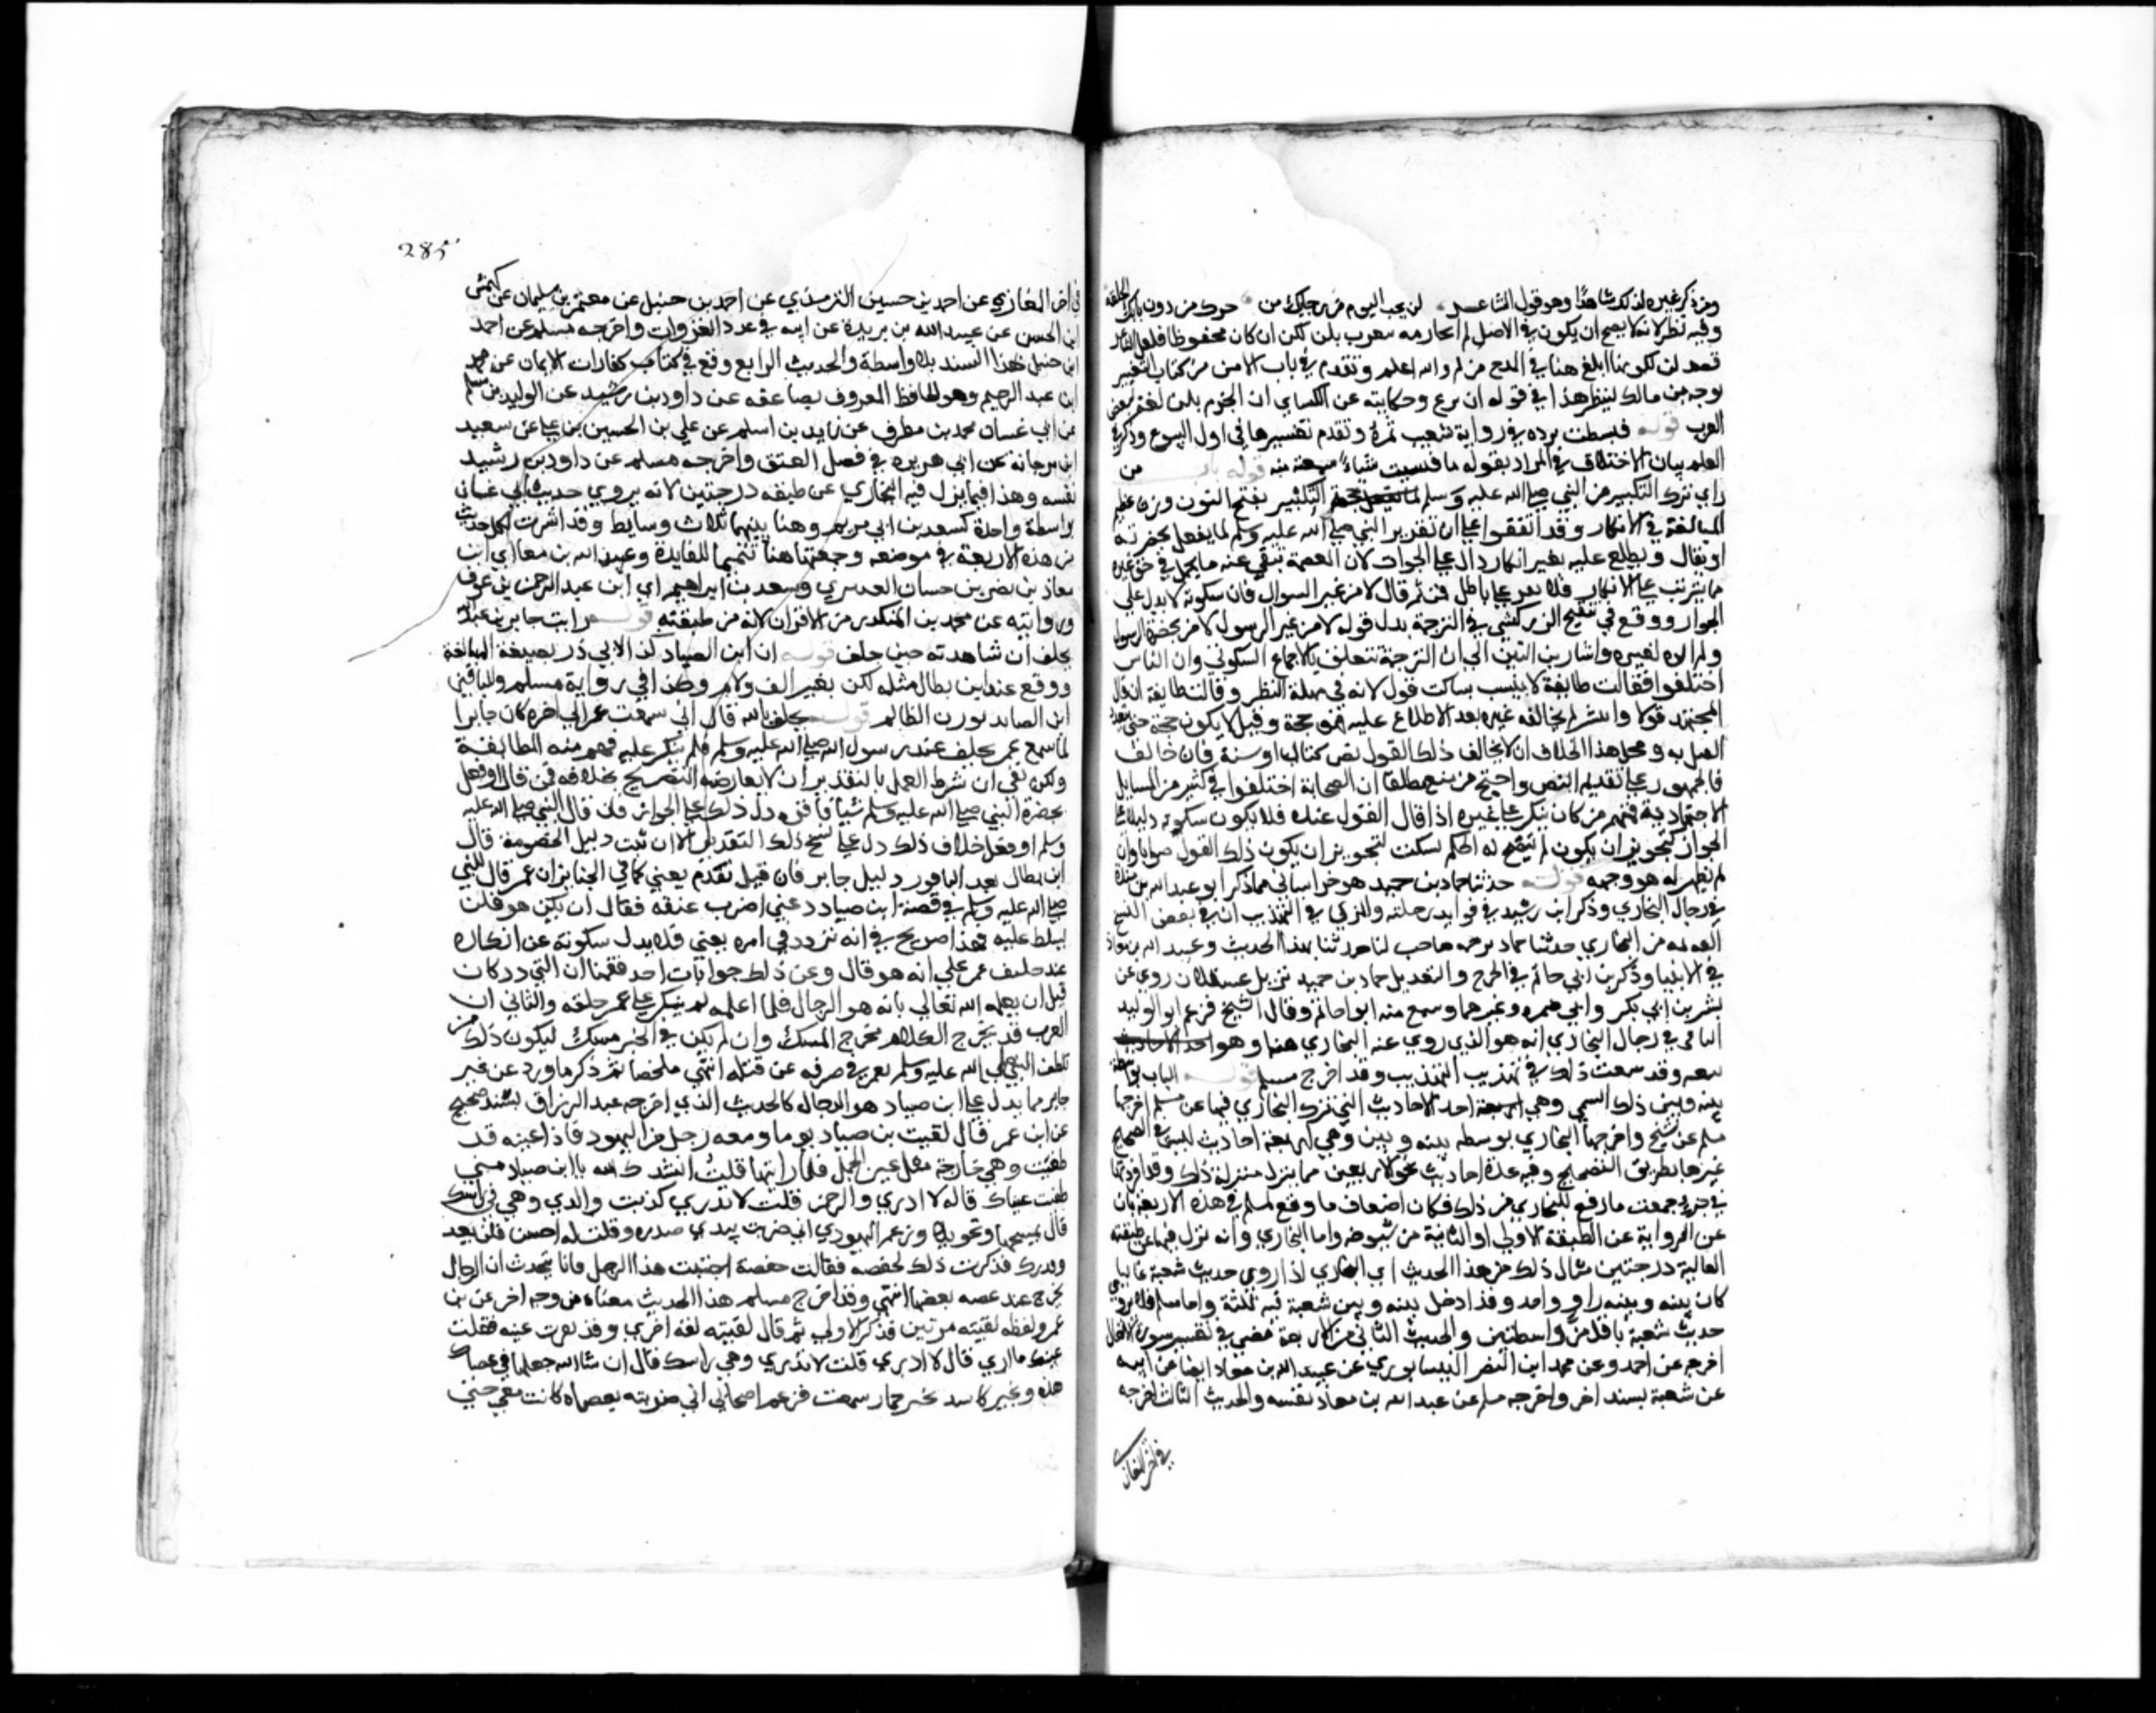 وقد ذكر غيره لذلك شاهدا وهو قول الشاعر لن يخب اليوم من رجايك من حرك من دون بابك الحلقة
وفيه نظر لانه لا يصح ان يكون في الاصل لم الجازمه لكن ان كان محفوظا فلعل الشاعر
قصد لن لكونها ابلغ هنا في المدح من لم والله اعلم وتقدم في باب الامن من كتاب التعبير
توجيه بن مالك لنظير هذا في قوله لن ترع وحكايته عن الكساي ان الجزم بلن لغة لبعض
العرب قوله فبسطت برده في رواية شعيب نمرة وتقدم تفسيرها في اول البيوع وذكر في
العلم بيان الاختلاف في المراد بقوله ما نسيت شياء سمعته منه قوله باب من
راي ترك النكير من النبي صلى الله عليه وسلم حجة النكير بفتح النون وزن عظيم
المبالغة في الانكار وقد اتفقوا على ان تقرير النبي صلى الله عليه وسلم لما يفعل بحضرته
او يقال ويطلع عليه بغير انكار دال على الجواز لان العصمة تنفي عنه ما يحتمل في حق غيره
مما يترتب على الانكار فلا يقر على باطل فمن ثم قال لا من غير الرسول فان سكوته لا يدل على
الجواز ووقع في تنقيح الزركشي في الترجمة بدل قوله لا من غير الرسول لا من بحضرة الرسول
ولم اره لغيره واشار بن التين الى ان الترجمة تتعلق بالاجماع السكوتي وان الناس
اختلفوا فقالت طايفة لا ينسب لساكت قول لانه في مهلة النظر وقالت طايفة ان قال
المجتهد قولا وانتشر لم يخالفه غيره بعد الاطلاع عليه فهو حجة وقيل لا يكون حجة حتى يتعدد
القيل به ومحل هذا الخلاف ان لا يخالف ذلك القول نص كتاب او سنة فان خالف
فالجمهور على تقديم النص واحتج من منع مطلقا ان الصحابة اختلفوا في كثير من المسايل
الاجتهادية فمنهم من كان ينكر على غيره اذا قال القول عنده فلا يكون سكوته دليلا على
الجواز لتجويز ان يكون لم يتضح له الحكم سكت لتجويز ان يكون ذلك القول صوابا وان
لم يظهر له هو وجهه قوله حدثنا حماد بن حميد هو خراساني فيما ذكر ابو عبد الله بن منده
في رجال البخاري وذكر ابن رشيد في فوايد رحلته والمزي في التهذيب ان في بعض النسخ
القديمه من البخاري حدثنا حماد بن حميد صاحب لنا حدثنا بهذا الحديث وعبيد الله بن معاذ
في الاحيا وذكر بن ابي حاتم في الجرح والتعديل حماد بن حميد نزيل عسقلان روي عن
بشر بن بكر وابي ضمره وغيرهما وسمع منه ابو حاتم وقال شيخ فزعم ابو الوليد
الباجي في رجال البخاري انه هو الذي روي عنه البخاري هنا وهو احد الاحاديث
بعيد وقد بينت ذلك في تهذيب التهذيب وقد اخرج مسلم الباب بواسطة
بينه وبين ذلك الشيخ وهي اربعة احد الاحاديث التي نزل البخاري فيها عن مسلم اخرجها
مسلم عن شيخ واخرجها البخاري بواسطة بينه وبين وهي اربعة احاديث ليس في الصحيح
غيرها بطريق التصحيح وفيه عدة احاديث نحو الاربعين مما يتنزل منزلة ذلك وقد افردتها
في جزء جمعت ما وقع للبخاري من ذلك فكان اضعاف ما وقع لمسلم في هذه الاربعة بان
عن الرواية عن الطبقة الاولى او الثانية من شيوخه واما البخاري وانه نزل فيها عن طبقته
العالية درجتين مثال ذلك من هذا الحديث ان البخاري اذا روي حديث شعبة عاليا
كان بينه وبينه راو واحد وقد ادخل بينه وبين شعبة فيه ثلثة واما مسلم فلا يروي
حديث شعبة باقل من واسطتين والحديث الثاني من الاربعة مضى في تفسير سورة الانفال
اخرجه عن احمد وعن محمد ابن النضر النيسابوري عن عبيد الله بن معاذ ايضا عن ابيه
عن شعبة بسند اخر واخرجه مسلم عن عبيد الله بن معاذ نفسه والحديث الثالث اخرجه
في اخر المغازي
285
في اخر المغازي عن احمد بن حسين الترمذي عن احمد بن حنبل عن معتمر بن سليمان عن كهمس
ابن الحسن عن عبيد الله بن بريدة عن ابيه في عدد الغزوات واخرجه مسلم عن احمد
ابن حنبل بهذا السند بلا واسطة والحديث الرابع وقع في كتاب كفارات الايمان عن محمد
ابن عبد الرحيم وهو الحافظ المعروف بصاعقه عن داود بن رشيد عن الوليد بن مسلم
عن ابي غسان محمد بن مطرف عن زيد بن اسلم عن علي بن الحسين بن علي عن سعيد
ابن مرجانة عن ابي هريره في فضل العتق واخرجه مسلم عن داود بن رشيد
نفسه وهذا فيما نزل فيه البخاري عن طبقته درجتين لانه يروي حديث ابي غسان
بواسطة واحدة كسعيد بن ابي مريم وهنا بينهما ثلاث وسايط وقد اشرت لكل حديث
من هذه الاربعة في موضعه وجمعتها هنا تتميما للفايدة وعبيد الله بن معاذ اي ابن
معاذ بن نصر بن حسان العنبري وسعد بن ابراهيم اي ابن عبد الرحمن بن عوف
وروايته عن محمد بن المنكدر من الاقران لانه من طبقته قوله رايت جابر بن عبد الله
يحلف اي شاهدته حين حلف قوله ان ابن الصياد كذا لابي ذر بصيغة المبالغة
ووقع عند ابن بطال مثله لكن بغير الف ولام وكذا في رواية مسلم وللباقين
ابن الصايد بوزن الظالم قوله يحلف بالله قال اني سمعت عمر الي اخره كان جابرا
لما سمع عمر يحلف عند رسول الله صلى الله عليه وسلم فلم ينكر عليه فهم منه المطابقة
ولكن بقي ان شرط العمل بالتقدير ان لا يعارضه التصريح بخلافه فمن قال او فعل
بحضرة النبي صلى الله عليه وسلم شيا فاقره دل ذلك على الجواز فان قال النبي صلى الله عليه
وسلم او فعل خلاف ذلك دل على نسخ ذلك التقدير الا ان ثبت دليل الخصوصة قال
ابن بطال بعد ان قرر دليل جابر فان قيل تقدم يعني كما في الجنايز ان عمر قال للنبي
صلى الله عليه وسلم في قصة ابن صياد دعني اضرب عنقه فقال ان يكن هو فلن
تسلط عليه فهذا صريح في انه تردد في امره يعني فلا يدل سكوته عن انكاره
عند حلف عمر على انه هو قال وعن ذلك جوابان احدهما ان التردد كان
قبل ان يعلمه الله تعالي بانه هو الدجال فلما اعلمه لم ينكر على عمر حلفه والثاني ان
العرب قد تخرج الكلام مخرج الشك وان لم يكن في الخبر شك ليكون ذلك من
تلطف النبي صلى الله عليه وسلم بعمر في صرفه عن قتله انتهي ملخصا ثم ذكر ما ورد عن غير
جابر مما يدل على ان ابن صياد هو الدجال كالحديث الذي اخرجه عبد الرزاق بسند صحيح
عن ابن عمر قال لقيت بن صياد يوما ومعه رجل من اليهود فاذا عينه قد
طفئت وهي خارجة مثل عين الجمل فلما رايتها قلت انشدك الله يا ابن صياد متى
طفئت عينك قال لا ادري والرحمن قلت لا تدري كذبت والدي وهي في راسك
قال فمسحها ونحر ثلاثا وزعم اليهودي اني ضربت بيدي صدره وقلت له اخس فلن تعد
وقدرك فذكرت ذلك لحفصه فقالت حفصة اجتنبت هذا الرجل فانا نتحدث ان الدجال
يخرج عند غضبه يغضبها انتهي وقد اخرج مسلم هذا الحديث معناه من وجه اخر عن بن
عمر ولفظه لقيته مرتين فذكر الاولي ثم قال لقيته لقية اخري وقد نفرت عينه فقلت
عينك ما اري قال لا ادري قلت لا تدري وهي راسك قال ان شا الله جعلها في عصاك
هذه ونخير كاشد نخير حمار سمعت فزعم اصحابي اني ضربته بعصاه كانت معي حتى